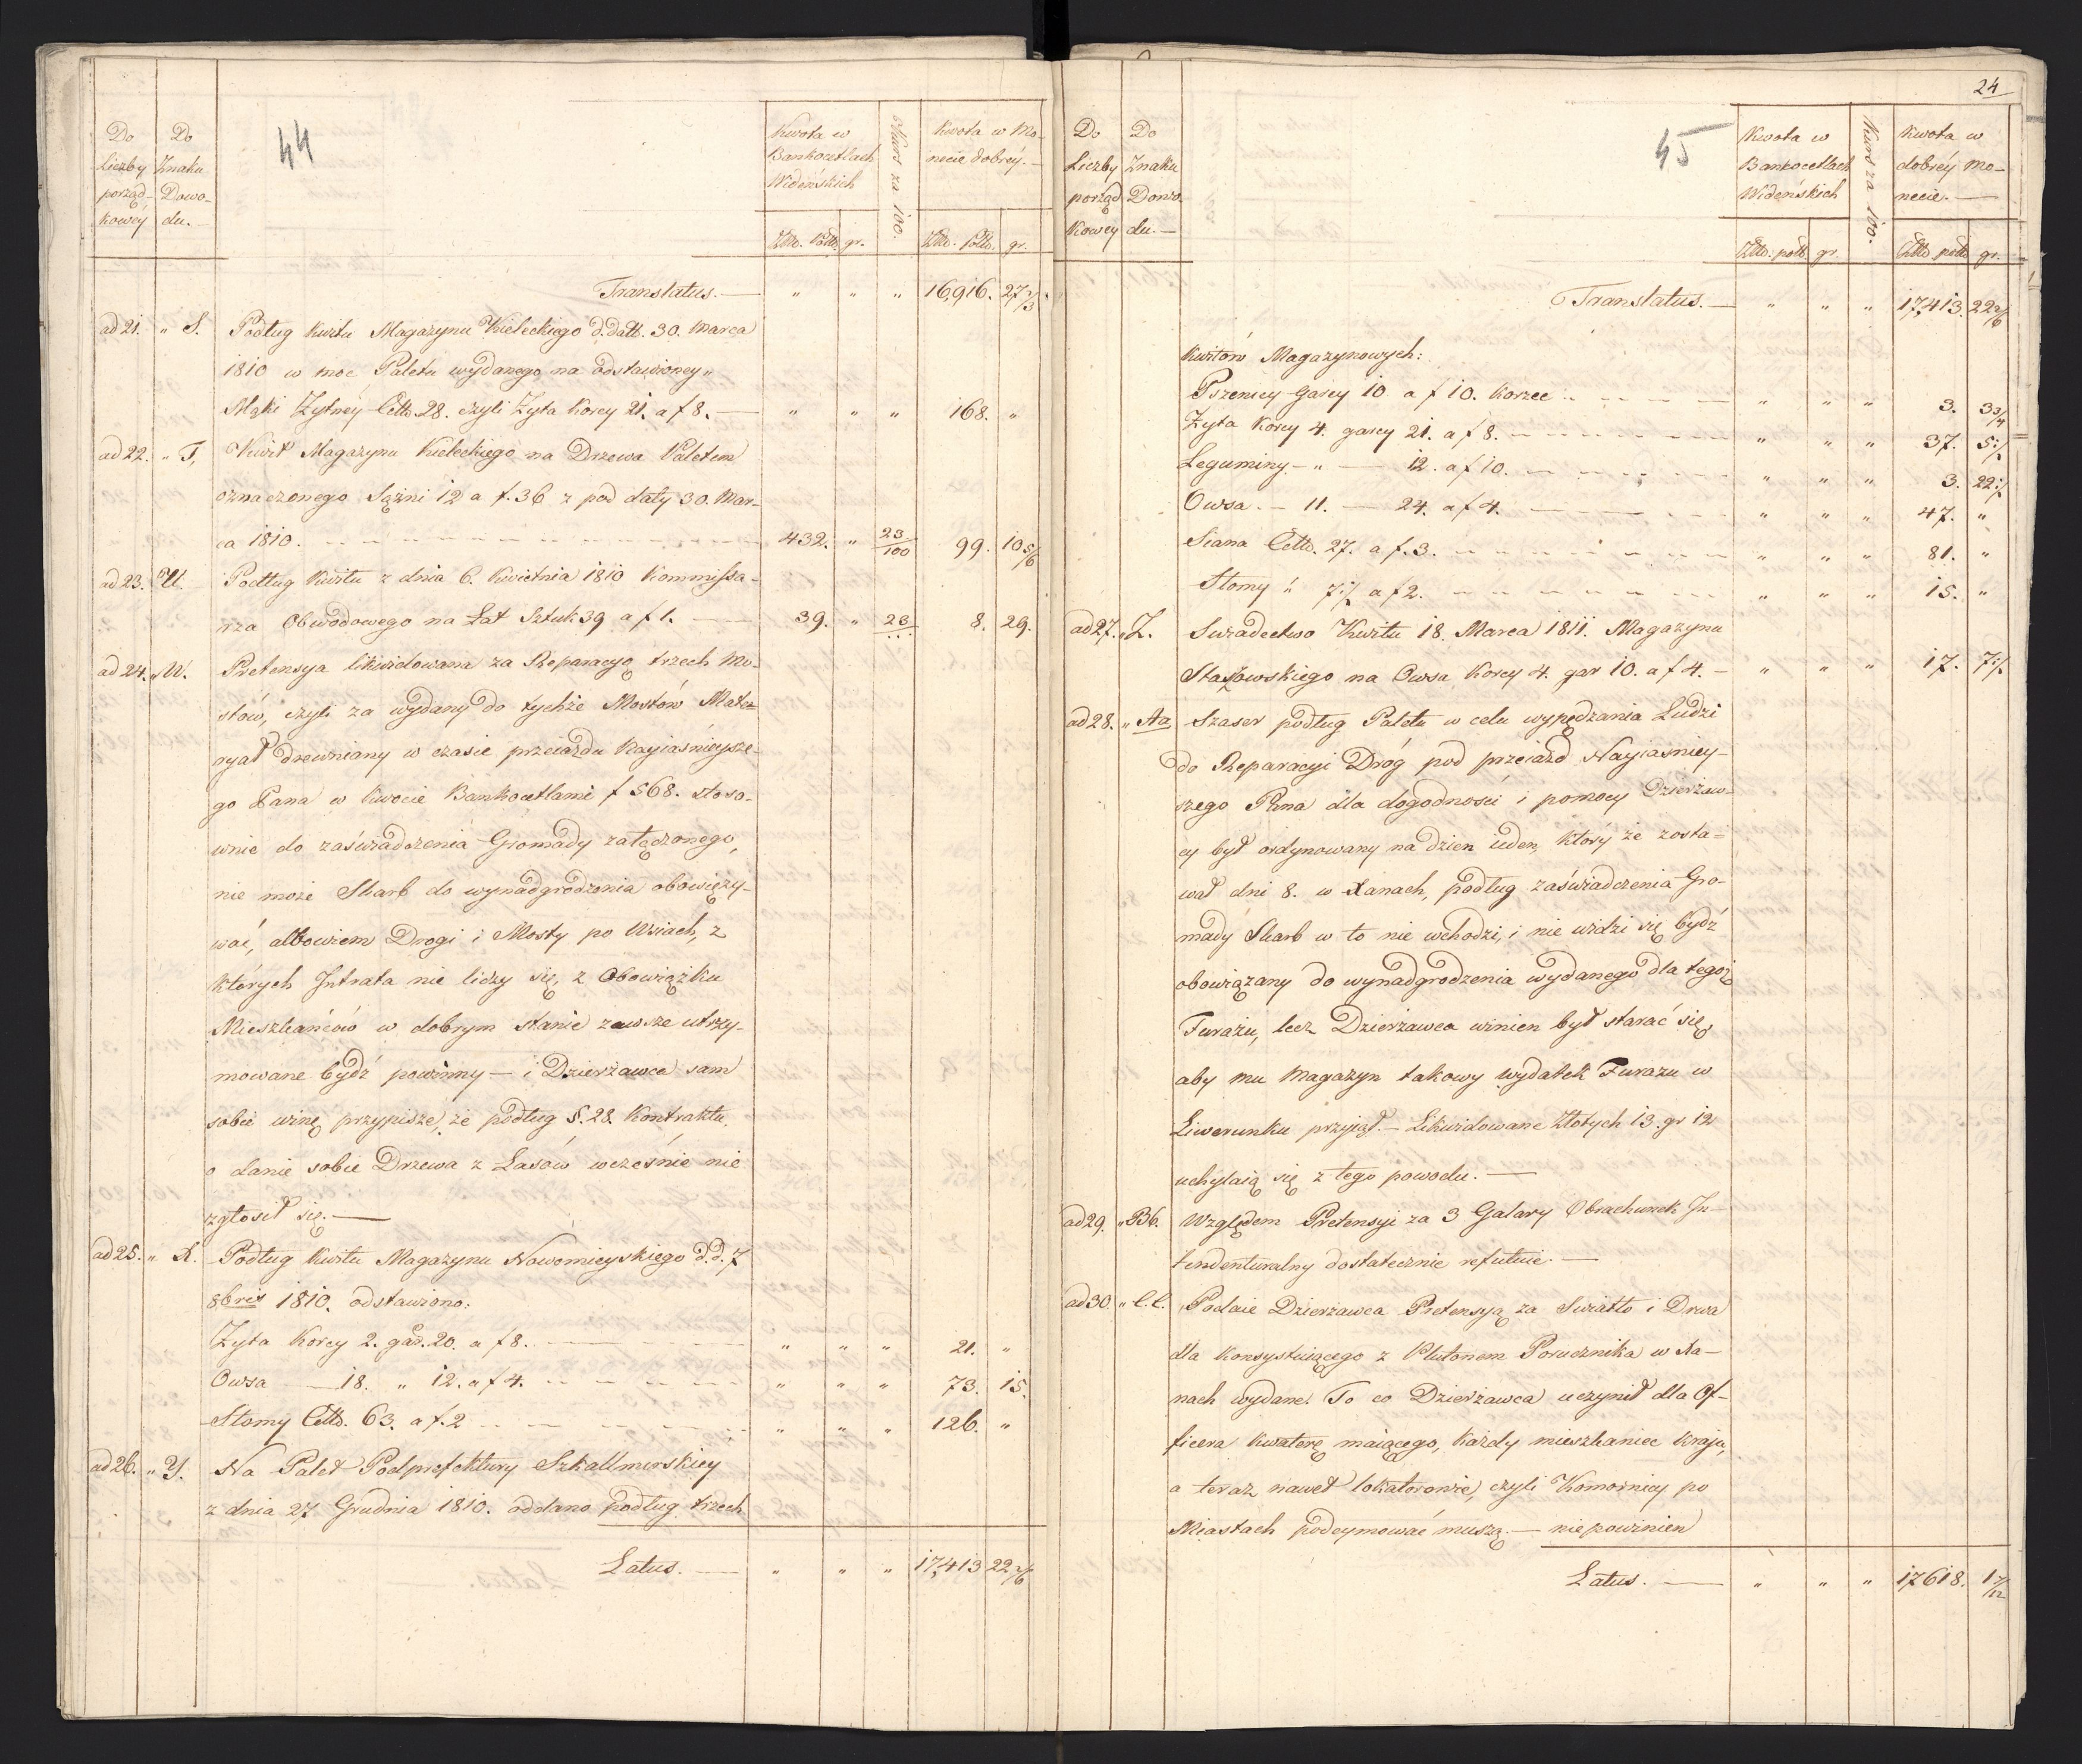 44
Do Liczby porząd-kowey
Do Znaku Dowo-du.
Kwota w Bankocetlach Widenskich
Kurs za 100.
Kwota w Mo-necie dobréy.
Złło. Pollo. gr.
Złło. Pollo. gr.
Translatus. — " " " 16,916. 27 2/3
ad 21. " S. Podług Kwitu Magazynu Kieleckiego d. datt. 30. Marca
1810 w moc Paletu wydanego na odstawioney "
Mąki Żytney Cetto. 28. czyli Żyta Korcy 21. a f 8. — " " " 168. "
ad 22. " T. Kwit Magazynu Kieleckiego na Drzewa Paletem
oznaczonego Sążni 12 a f. 36 z pod daty 30. Mar-
ca 1810. 432. " 23/100 99. 10 5/6
ad 23. U. Podług Kwitu z dnia 6. Kwietnia 1810 Kommissa-
rza Obwodowego na Łat Sztuk 39 a f 1. — 39. " 23/... 8. 29.
ad 24. " W. Pretensya likwidowana za Reparacyę trzech Mo-
stów, czyli za wydany do tychże Mostów Mate-
ryał drewniany w czasie przeiazdu Nayiaśnieysze-
go Pana w kwocie Bankocetlami f 568. stoso-
wnie do zaświadczenia Gromady załączonego,
nie może Skarb do wynadgrodzenia obowięzy-
wać, albowiem Drogi i Mosty po Wsiach, z
których Intrata nie liczy się, z Obowiązku
Mieszkańców w dobrym stanie zawsze utrzy-
mowane bydź powinny — i Dzierżawca sam
sobie winę przypisze, że podług §. 28. Kontraktu,
o danie sobie Drzewa z Lasów wcześnie nie
zgłosił się. —
ad 25. " X. Podług Kwitu Magazynu Nowomieyskiego d. d. 7
8bris 1810. odstawiono:
Żyta Korcy 2. gar. 20. a f 8. — " " " 21. "
Owsa — 18. " 12. a f 4. " " " 73. 15.
Słomy Cetto. 63. a f. 2 " " " 126. "
ad 26. " Y. Na Palet Podprefektury Szkallmirskiey
z dnia 27 Grudnia 1810. oddano podług trzech
Latus. — " " " 17,413 22 2/6
24
45
Do Liczby porząd kowey
Do Znaku Dowo-du. —
Kwota w Bankocetlach Widenskich
Kurs za 100.
Kwota w dobréy Mo-necie. —
Złło. pollo gr.
Złło pollo gr.
Translatus. — " " " 17,413. 22 2/6
Kwitów Magazynowych:
Pszenicy garcy 10 a f 10. Korzec " " " 3. 3 3/4
Żyta Korcy 4. garcy 21. a f 8. " " " 37. 5 ./.
Leguminy — " — 12. a f 10. " " " 3. 22 ./.
Owsa. — 11. — 24. a f 4. " " " 47. "
Siana Cetto. 27. a f. 3. " " " 81. "
Słomy " 7 ./. a f 2. " " " 15. "
ad 27. " Z. Swiadectwo Kwitu 18. Marca 1811. Magazynu
Staszowskiego na Owsa Korcy 4. gar 10. a f 4. — " " " 17. 7 ./.
ad 28. " Aa Szaser podług Paletu w celu wypędzania Ludzi
do Reparacyi Dróg pod przeiazd Nayiaśniey-
szego Pana dla dogodności i pomocy Dzierżaw-
cy był ordynowany na dzien ieden, który że zosta-
wał dni 8. w Xanach, podług zaświadczenia Gro-
mady Skarb w to nie wchodzi, i nie widzi się bydź
obowiązany do wynadgrodzenia wydanego dla tegoż
Furażu, lecz Dzierżawca winien był starać się,
aby mu Magazyn takowy wydatek Furazu w
Liwerunku przyiął. — Likwidowane Złotych 13. gr 12
uchylaią się z tego powodu. —
ad 29. " Bb. Względem Pretensyi za 3 Galary Obrachunek In-
tendenturalny dostatecznie refutuie. —
ad 30. " C.C. Podaie Dzierżawca Pretensyą za Swiatło i Drwa
dla konsystuiącego z Plutonem Porucznika w Xa-
nach wydane. To co Dzierżawca uczynił dla Of-
ficera kwaterę maiącego, każdy mieszkaniec kraju,
a teraz nawet lokatorowie, czyli Komornicy po
Miastach podeymować muszą. — nie powinien
Latus. — " " " 17618. 1 7/12